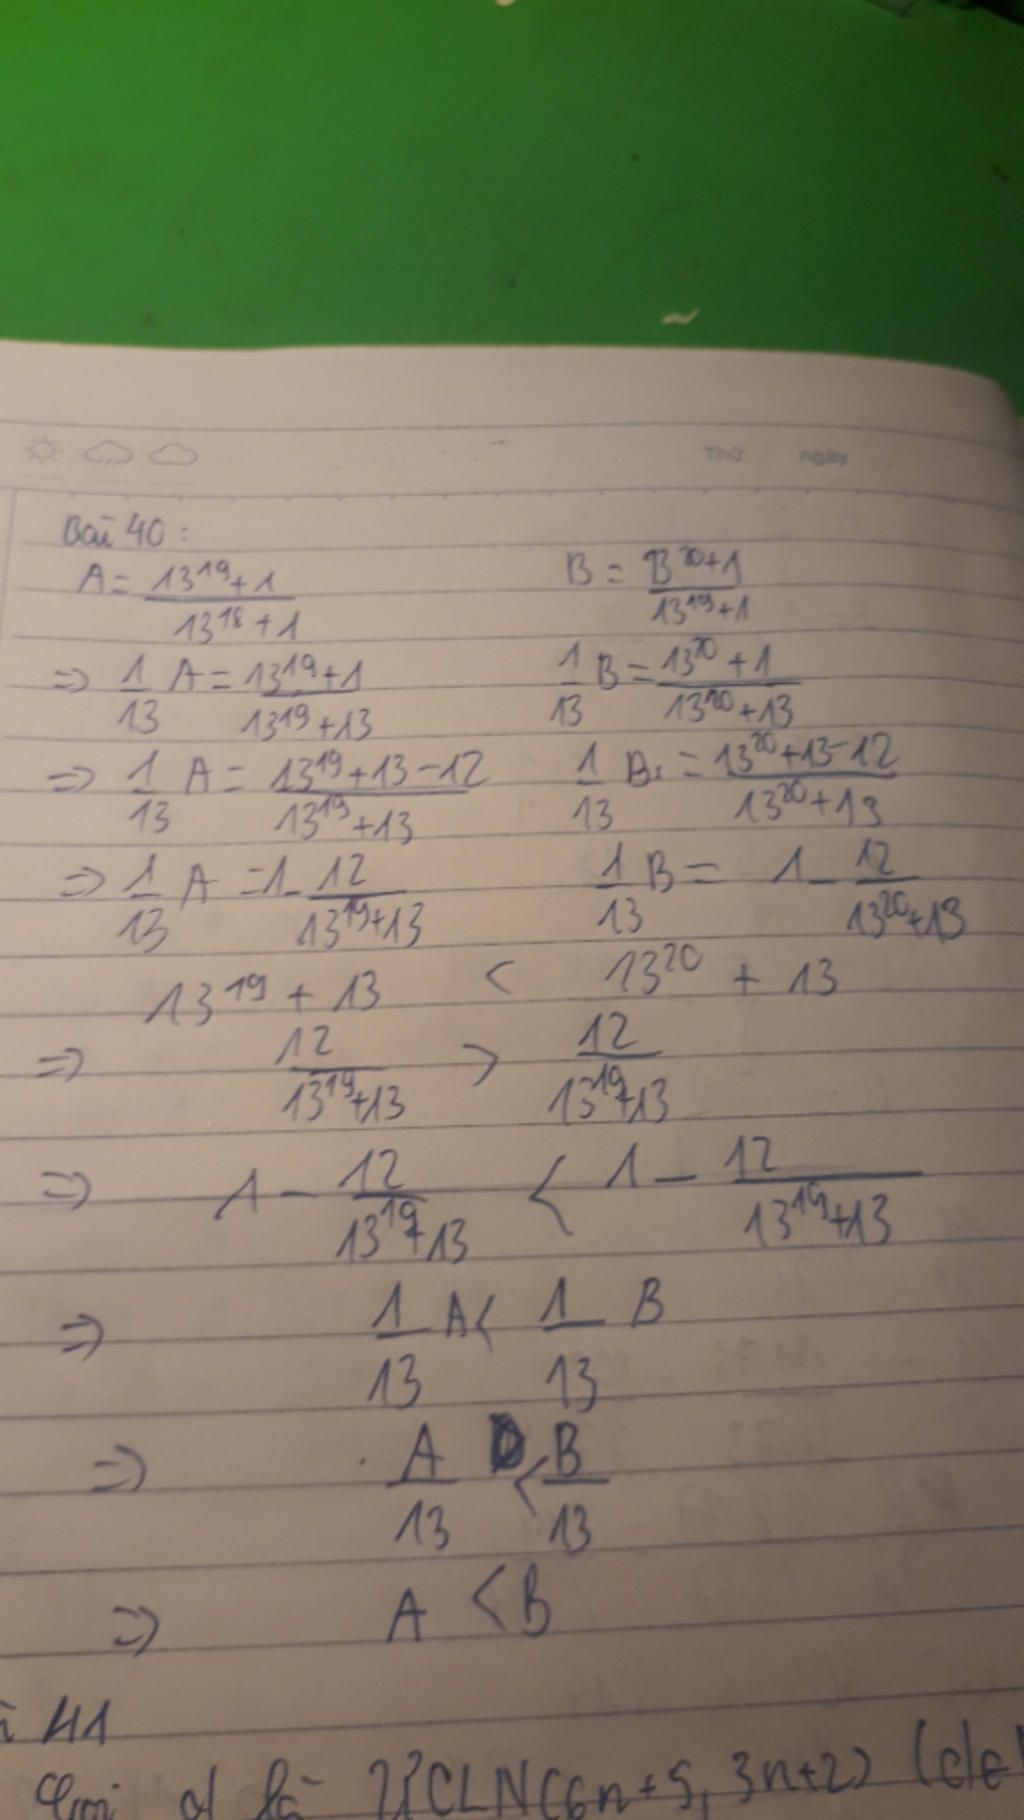 Thứ ngày
Bài 40 :
A = 13^19 + 1 / 13^18 + 1 B = 13^20 + 1 / 13^19 + 1
=> 1/13 A = 13^19 + 1 / 13^19 + 13 1/13 B = 13^20 + 1 / 13^20 + 13
=> 1/13 A = 13^19 + 13 - 12 / 13^19 + 13 1/13 B = 13^20 + 13 - 12 / 13^20 + 13
=> 1/13 A = 1 - 12 / 13^19 + 13 1/13 B = 1 - 12 / 13^20 + 13
13^19 + 13 < 13^20 + 13
=> 12 / 13^19 + 13 > 12 / 13^19 + 13
=> 1 - 12 / 13^19 + 13 < 1 - 12 / 13^19 + 13
=> 1/13 A < 1/13 B
=> A/13 < B/13
=> A < B
41
Gọi d là ƯCLN(6n+5, 3n+2)